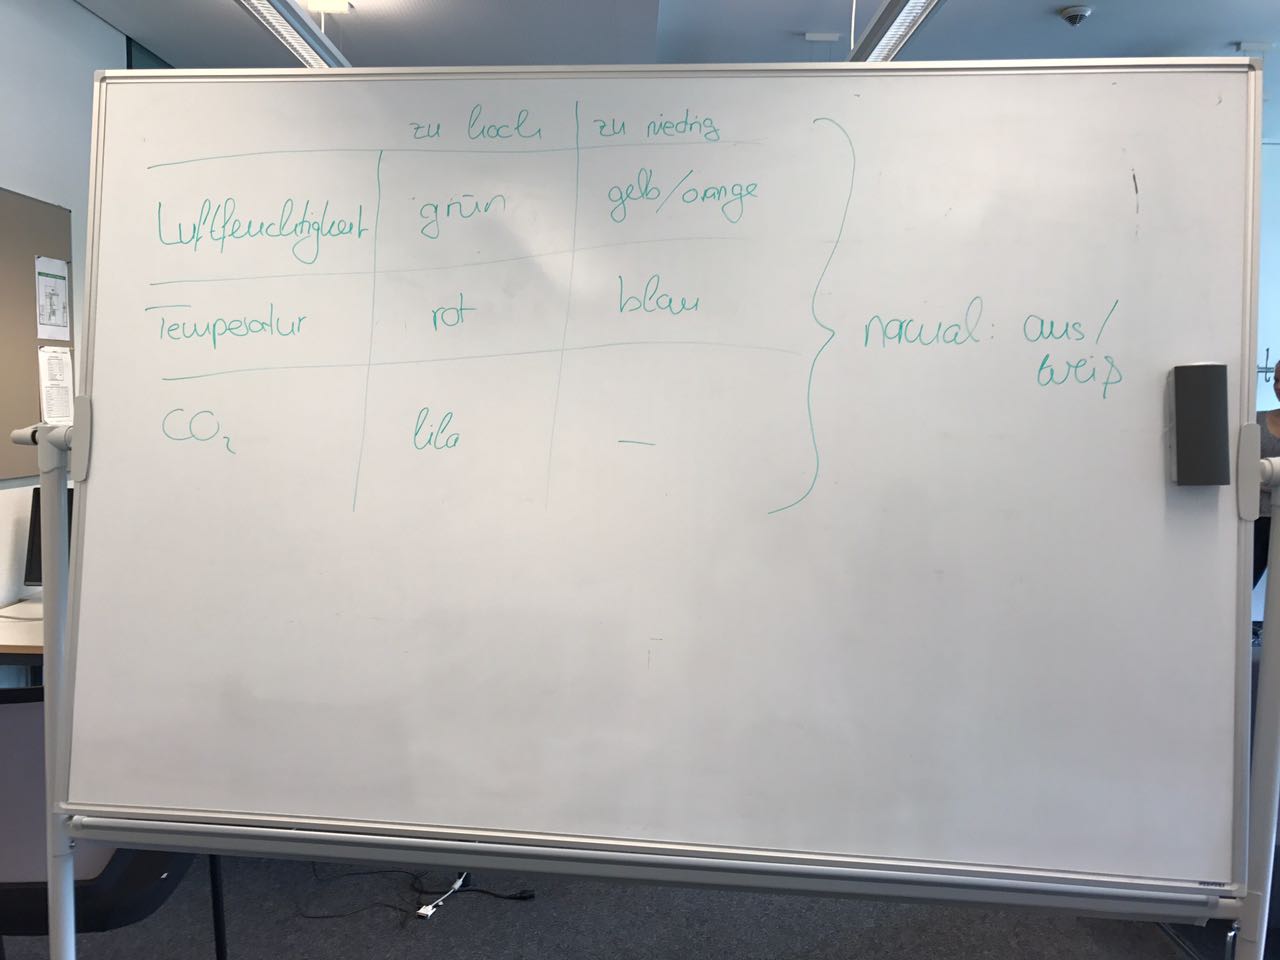 zu hoch zu niedrig
Luftfeuchtigkeit grün gelb/orange
Temperatur rot blau
normal: aus/
weiß
CO₂ lila —